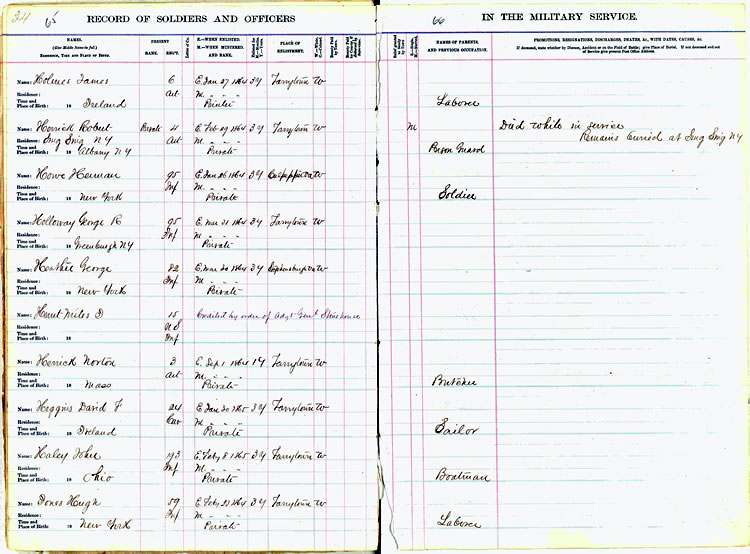 34 65
RECORD OF SOLDIERS AND OFFICERS
NAMES.
(Give Middle Names in full.)
RESIDENCE, TIME AND PLACE OF BIRTH.
PRESENT
RANK. REG'T.
Letter of Co.
E.—WHEN ENLISTED.
M.—WHEN MUSTERED,
AND RANK.
PLACE OF
ENLISTMENT.
Name: Holmes James 6 E Jan 27 1864 3y Tarrytown W
Residence: Art M " " "
Time and
Place of Birth: 18 Ireland Private
Name: Herrick Robert Private 4 E Feb 1864 3y Tarrytown W
Residence: Sing Sing N Y Art M " " "
Time and
Place of Birth: 18 Albany N Y Private
Name: Howe Herman 95 E Jan 26 1864 3y W
Residence: Inf M " " "
Time and
Place of Birth: 18 New York Private
Name: Holloway George R 95 E Mar 31 1864 3y Tarrytown W
Residence: Inf M " " "
Time and
Place of Birth: 18 Greenburgh N Y Private
Name: George 82 E Mar 1864 3y W
Residence: Inf M " " "
Time and
Place of Birth: 18 New York Private
Name: Miles D 15 Credited by order of Adjt Genl Stonehouse
Residence: U S
Time and
Place of Birth: 18 Inf
Name: Herrick Norton 3 E Sep 1 1864 1y Tarrytown W
Residence: Art M " " "
Time and
Place of Birth: 18 Mass Private
Name: Heggins David F 24 E Jan 20 1865 3y Tarrytown W
Residence: Cav M " " "
Time and
Place of Birth: 18 Ireland Private
Name: Haley John 193 E Feby 8 1865 3y Tarrytown W
Residence: Inf M " " "
Time and
Place of Birth: 18 Ohio Private
Name: Jones Hugh 59 E Feby 1864 3y Tarrytown W
Residence: Inf M " " "
Time and
Place of Birth: 18 New York Private
66
IN THE MILITARY SERVICE.
NAMES OF PARENTS,
AND PREVIOUS OCCUPATION.
PROMOTIONS, RESIGNATIONS, DISCHARGES, DEATHS, &c., WITH DATES, CAUSES, &c.
If deceased, state whether by Disease, Accident or on the Field of Battle; give Place of Burial. If not deceased and out
of Service give present Post Office Address.
Laborer
M Died while in service
Remains buried at Sing Sing N Y
Prison Guard
Soldier
Butcher
Sailor
Boatman
Laborer